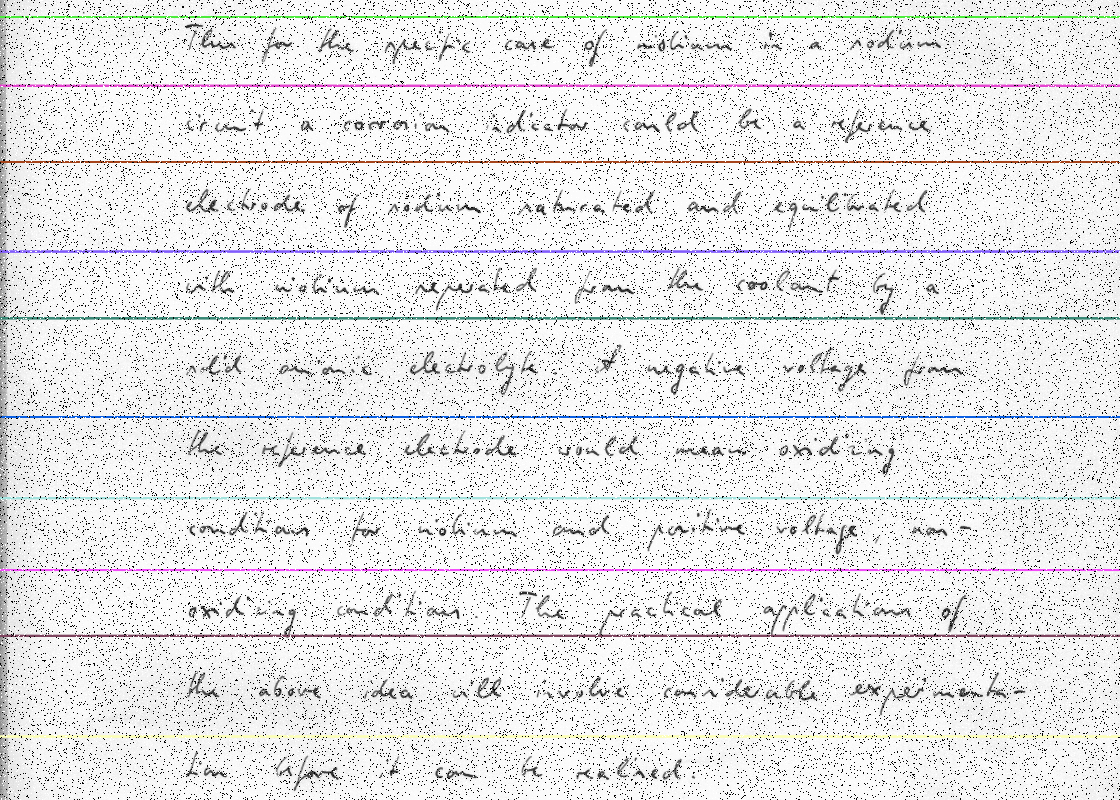 Thus for the specific case of niobium in a sodium
circuit a corrosion indicator could be a reference
electrode of sodium saturated and equilibrated
with niobium separated from the coolant by a
solid anionic electrolyte. A negative voltage from
the reference electrode would mean oxidising
conditions for niobium and positive voltage, non-
oxidising conditions. The practical applications of
the above idea will involve considerable experimenta-
tion before it can be realised.